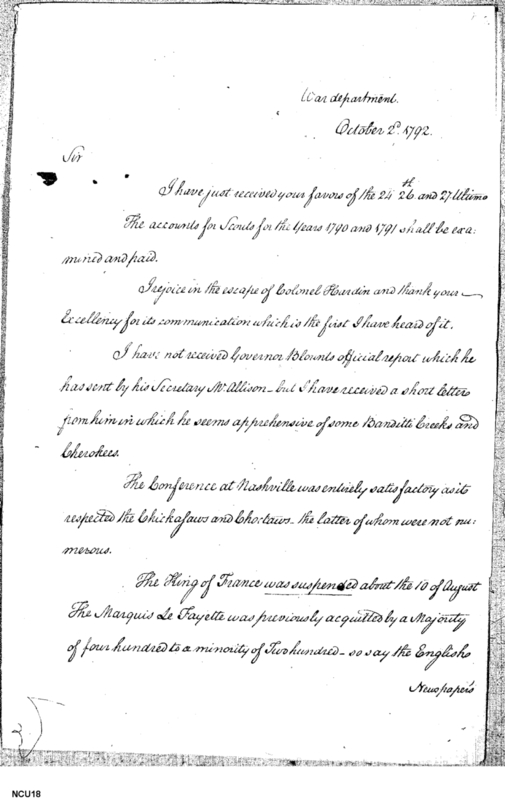 War department.
October 2d. 1792.
Sir
I have just received your favors of the 24th 26. and 27 Ultimo
The accounts for Scouts for the Years 1790 and 1791 shall be exa:
mined and paid.
I rejoice in the escape of Colonel Hardin and thank your
Excellency for its communication which is the first I have heard of it.
I have not received Governor Blounts official report which he
has sent by his Secretary Mr Allison - but I have received a short letter
from him in which he seems apprehensive of some Banditti Creeks and
Cherokees.
The Conference at Nashville was entirely satisfactory as it
respected the Chickasaws and Choctaws - the latter of whom were not nu:
merous.
The King of France was suspended about the 10 of August
The Marquis Le Fayette was previously acquitted by a Majority
of four hundred to a minority of Two hundred - so say the English
Newspapers
NCU18